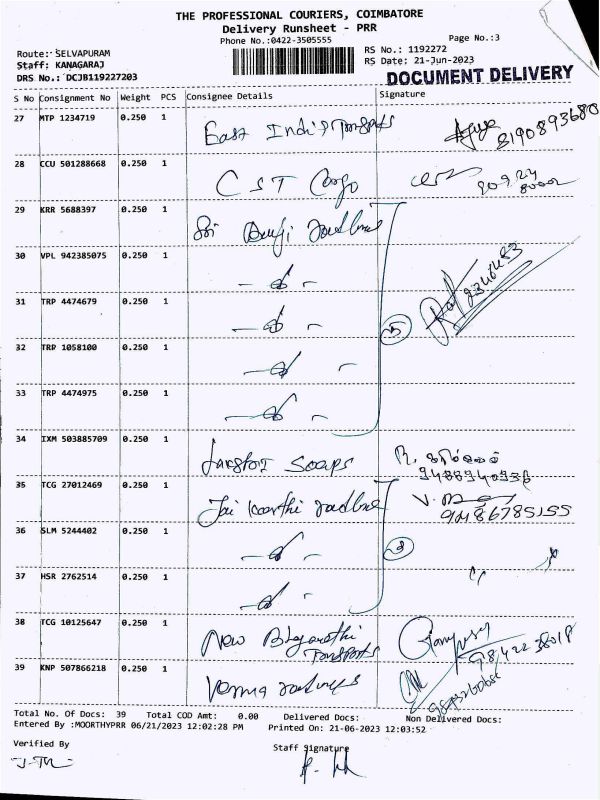 THE PROFESSIONAL COURIERS, COIMBATORE
Delivery Runsheet - PRR
Phone No.:0422-3505555
Page No.:3
Route: SELVAPURAM
RS No.: 1192272
Staff: KANAGARAJ
RS Date: 21-Jun-2023
DRS No.: DCJB119227203
DOCUMENT DELIVERY
S No Consignment No Weight PCS Consignee Details Signature
27 MTP 1234719 0.250 1 East India Transports 8190893680
28 CCU 501288668 0.250 1 C S T Cargo
29 KRR 5688397 0.250 1 Sri
30 VPL 942385075 0.250 1
31 TRP 4474679 0.250 1
5
32 TRP 1058100 0.250 1
33 TRP 4474975 0.250 1
34 IXM 503885709 0.250 1 soaps
35 TCG 27012469 0.250 1 Jai 9486785155
36 SLM 5244402 0.250 1
2
37 HSR 2762514 0.250 1
38 TCG 10125647 0.250 1 New Transports
39 KNP 507866218 0.250 1 Verma
Total No. Of Docs: 39 Total COD Amt: 0.00 Delivered Docs: Non Delivered Docs:
Entered By :MOORTHYPRR 06/21/2023 12:02:28 PM Printed On: 21-06-2023 12:03:52
Verified By Staff Signature